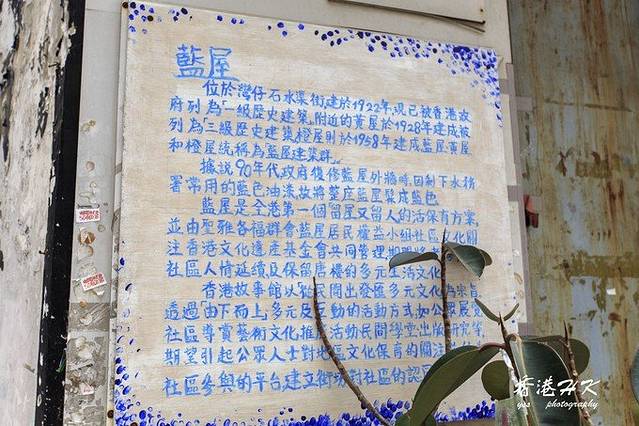 藍屋
位於灣仔石水渠街,建於1922年,現已被香港政
府列為「一級歷史建築」,附近的黃屋於1928年建成被
列為「三級歷史建築」,橙屋則於1958年建成,藍屋,黃屋
和橙屋統稱為「藍屋建築群」。
據說90年代政府復修藍屋外牆時,因剩下水務
署常用的藍色油漆,故將整座藍屋髹成藍色
藍屋是全港第一個留屋又留人的活保育方案,
並由聖雅各福群會,藍屋居民權益小組,社區文化關
注,香港文化遺產基金會共同管理,期望將
社區人情延續及保留唐樓的多元生活文化
香港故事館以「從民間出發匯多元文化」為宗旨
透過「由下而上」多元及互動的活動方式,如公眾展覽
社區導賞,藝術文化推廣活動,民間學堂,出版,研究等,
期望引起公眾人士對地區文化保育的關注
社區參與的平台,建立街坊對社區的認
香港HK
yss photography